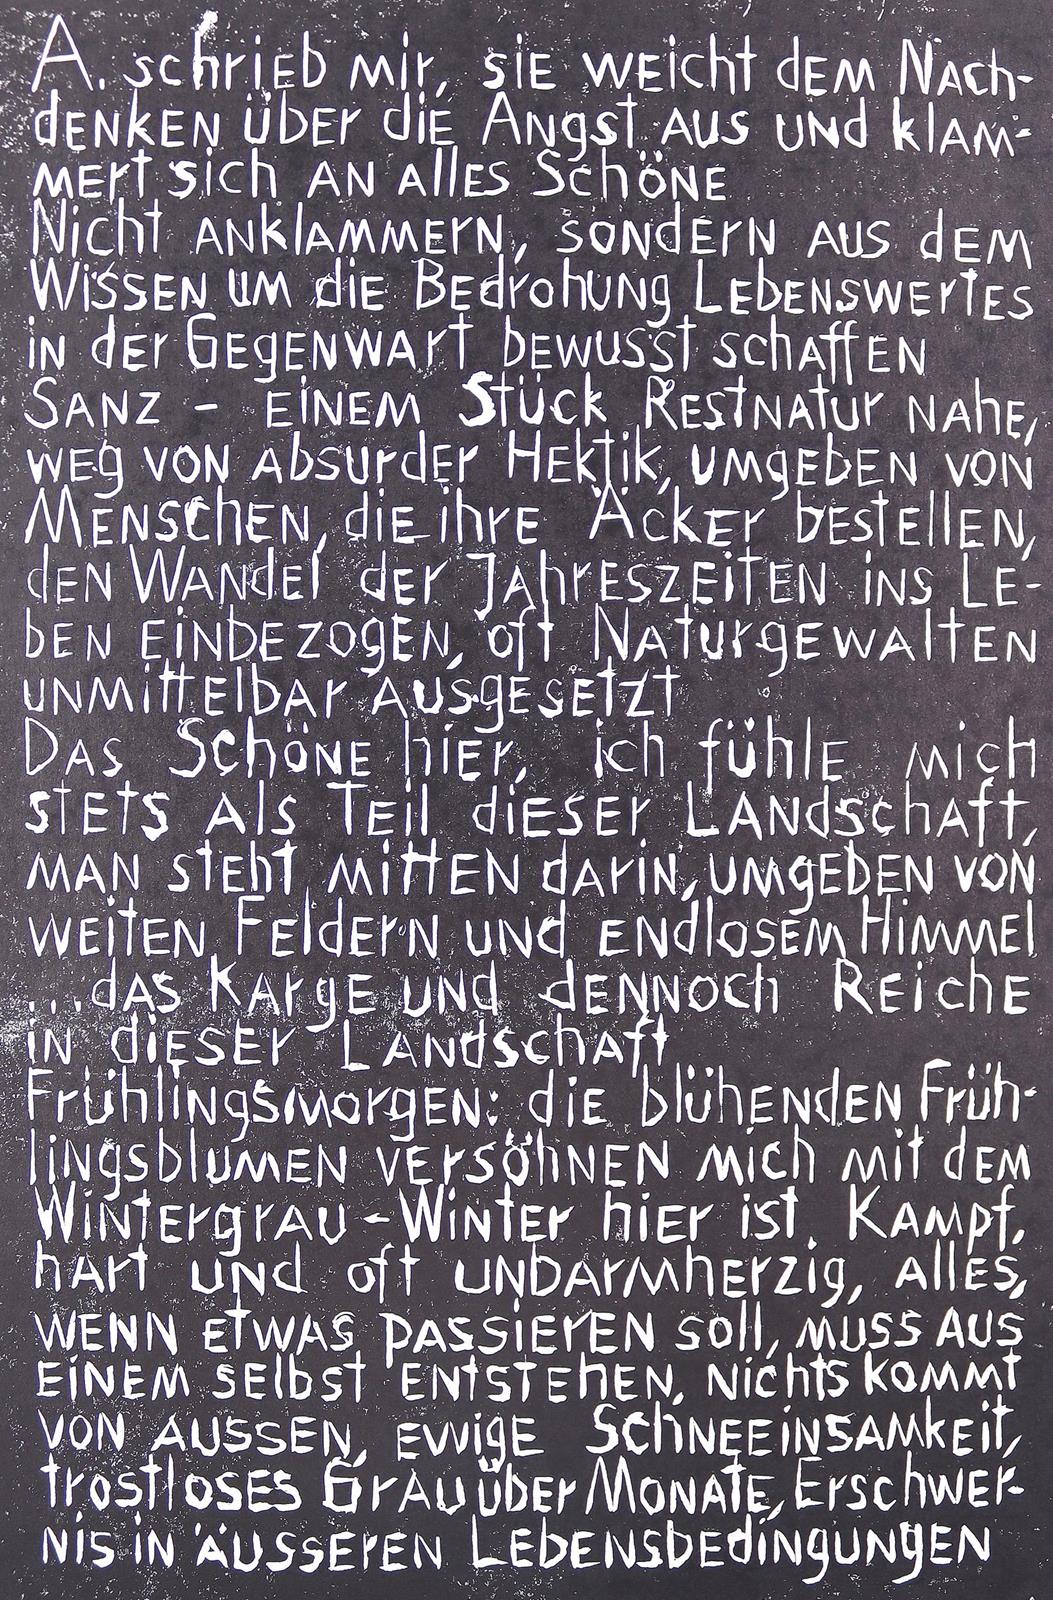 A. schrieb mir, sie weicht dem Nach-
denken über die Angst aus und klam-
mert sich an alles Schöne
Nicht anklammern, sondern aus dem
Wissen um die Bedrohung Lebenswertes
in der Gegenwart bewusst schaffen
Sanz - einem Stück Restnatur nahe,
weg von absurder Hektik, umgeben von
Menschen, die ihre Äcker bestellen,
den Wandel der Jahreszeiten ins Le-
ben einbezogen, oft Naturgewalten
unmittelbar ausgesetzt
Das Schöne hier, ich fühle mich
stets als Teil dieser Landschaft,
man steht mitten darin, umgeben von
weiten Feldern und endlosem Himmel
...das Karge und dennoch Reiche
in dieser Landschaft
Frühlingsmorgen: die blühenden Früh-
lingsblumen versöhnen mich mit dem
Wintergrau - Winter hier ist Kampf,
hart und oft unbarmherzig, alles,
wenn etwas passieren soll, muss aus
einem selbst entstehen, nichts kommt
von aussen, ewige Schneeeinsamkeit,
trostloses Grau über Monate, Erschwer-
nis in äusseren Lebensbedingungen